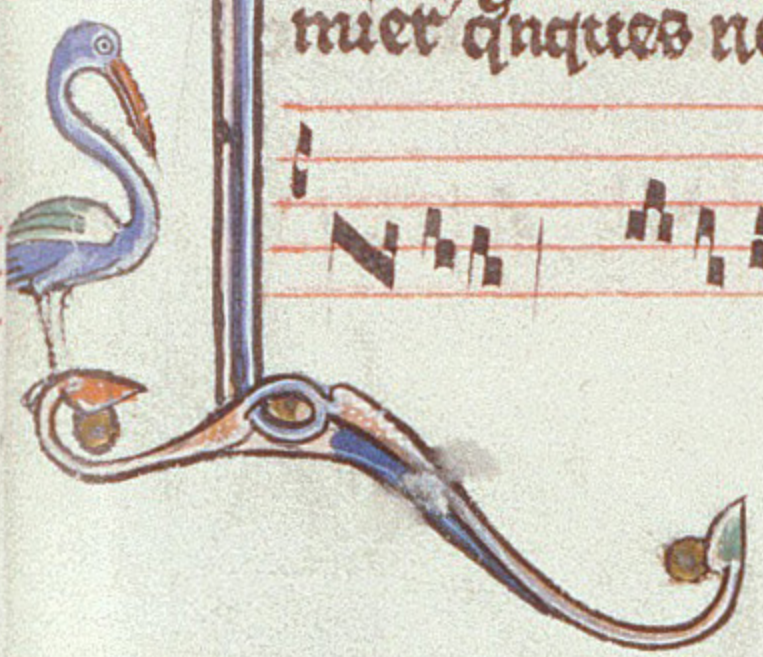 mier qnques ne